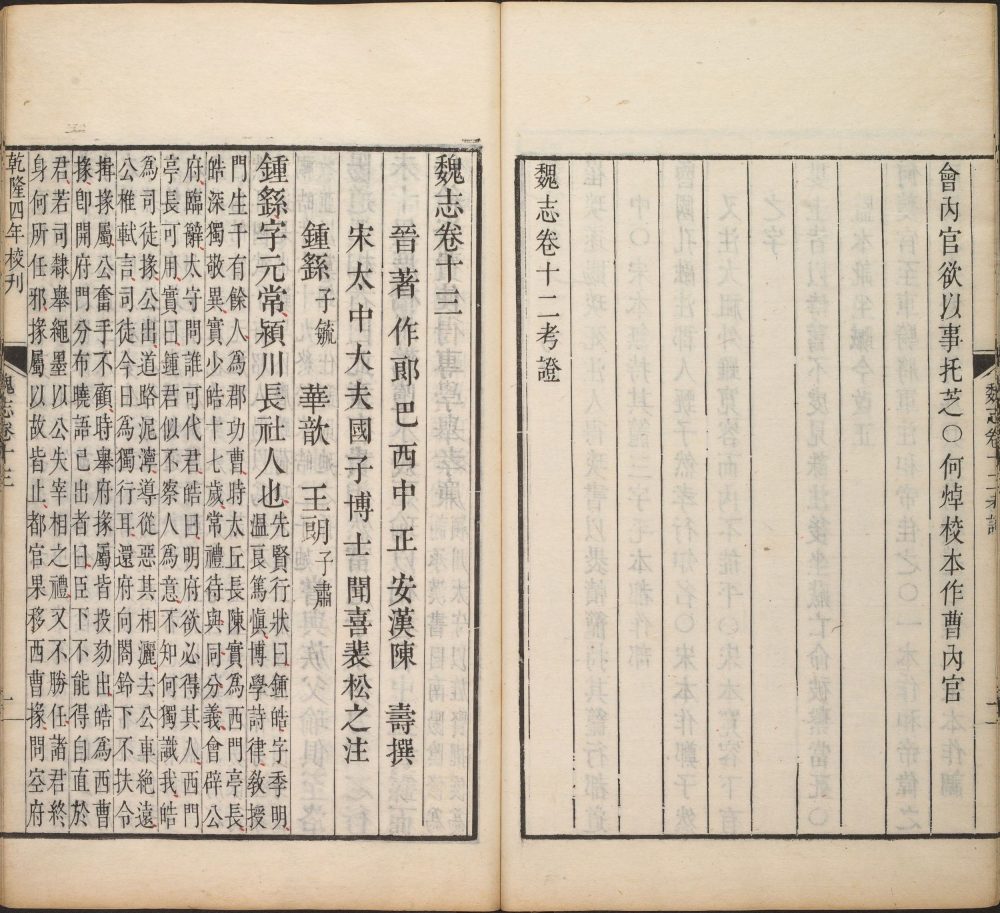 會內官欲以事托芝○何焯校本作曹內官
魏志卷十二考證
魏志卷十三
晉著作郞巴西中正安漢陳壽撰
宋太中大夫國子博士聞喜裴松之注
鍾繇子毓 華歆 王朗子肅
鍾繇字元常潁川長社人也先賢行狀曰鍾皓字季明
溫良篤愼博學詩律敎授
門生千有餘人爲郡功曹時太丘長陳寔爲西門亭長
皓深獨敬異寔少皓十七歲常禮待與同分義會辟公
府臨辭太守問誰可代君皓曰明府欲必得其人西門
亭長可用寔曰鍾君似不察人爲意不知何獨識我皓
爲司徒掾公出道路泥濘導從惡其相灑去公車絶遠
公椎軾言司徒今日爲獨行耳還府向閤鈴下不扶令
揖掾屬公奮手不顧時舉府掾屬皆投劾出皓爲西曹
掾卽開府門分布曉語已出者曰臣下不能得自直於
君若司隷舉繩墨以公失宰相之禮又不勝任諸君終
身何所任邪掾屬以故皆止都官果移西曹掾問空府
乾隆四年校刊
魏志卷十三